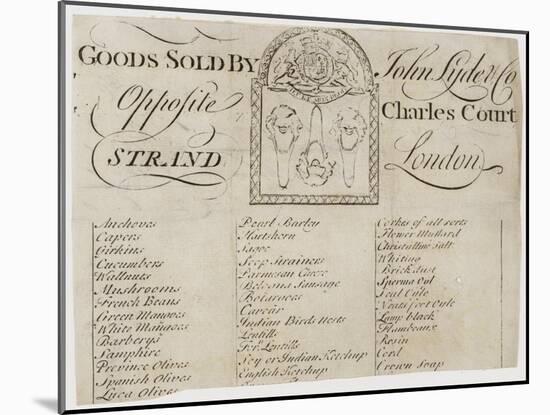 GOODS SOLD BY John Lyde & Co
Opposite Charles Court
STRAND London
Anchoves
Capers
Girkins
Cucumbers
Wallnuts
Mushrooms
French Beans
Green Mangoes
White Mangoes
Barberys
Samphire
Province Olives
Spanish Olives
Luca Olives
Pearl Barley
Hartshorn
Sagoe
Soop Strainers
Parmesan Cheese
Bolonia Sausage
Botargoes
Cavear
Indian Birds Nests
Lentills
Forn Lentills
Soy or Indian Ketchup
English Ketchup
Corkes of all sorts
Flower Mustard
Christalline Salt
Whiting
Brick dust
Sperma Oyl
Seal Oyle
Neats foot Oyle
Lamp black
Flambeaux
Rosin
Cord
Crown Soap